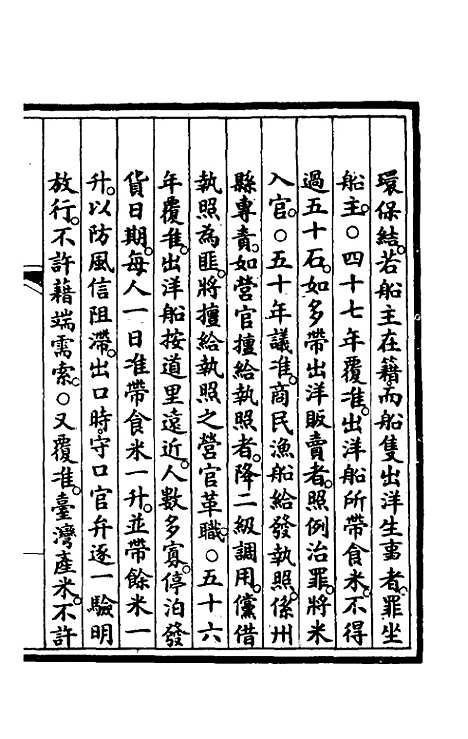 環保結。若船主在籍而船隻出洋生事者。罪坐
船主。○四十七年覆准。出洋船所帶食米。不得
過五十石。如多帶出洋販賣者。照例治罪。將米
入官。○五十年議准。商民漁船給發執照。係州
縣專責。如營官擅給執照者。降二級調用。儻借
執照為匪。將擅給執照之營官革職。○五十六
年覆准。出洋船按道里遠近。人數多寡。停泊發
貨日期。每人一日准帶食米一升。並帶餘米一
升。以防風信阻滯。出口時。守口官弁逐一驗明
放行。不許藉端需索。○又覆准。臺灣產米。不許